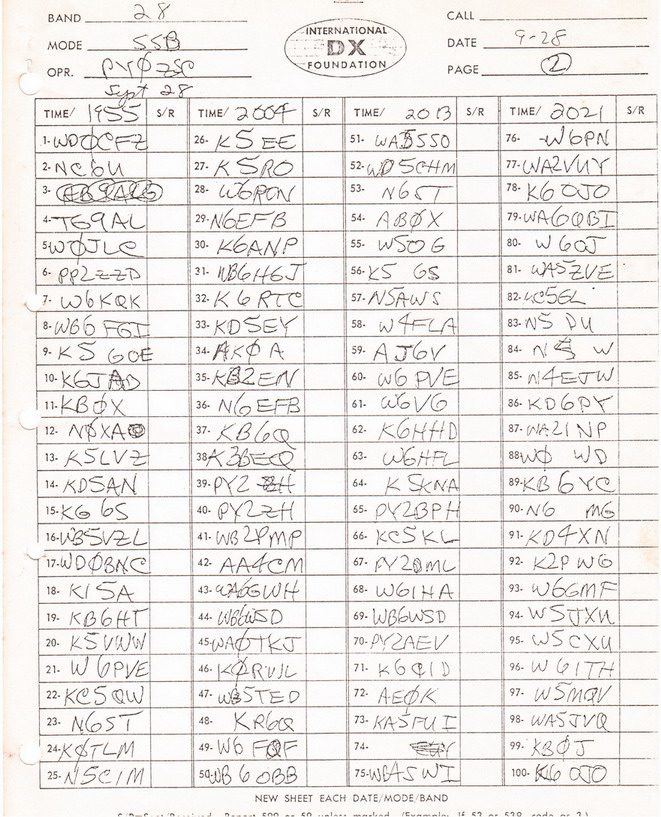 BAND 28
CALL
INTERNATIONAL
DX
FOUNDATION
MODE SSB
DATE 9-28
OPR. PYØZSC
PAGE 2
Sept 28
TIME/ 1955 S/R TIME/ 2004 S/R TIME/ 2013 S/R TIME/ 2021 S/R
1- WDØCFZ 26- K5EE 51- 76- W6PN
2- NC6U 27- K5RO 52- WD5CHM 77- WA2VUY
3- 28- W6RON 53- N6ST 78- K6OJO
4- TG9AL 29- N6EFB 54- ABØX 79- WA6QBI
5- WØJLC 30- K6ANP 55- W5OG 80- W6OJ
6- PP2ZZD 31- WB6HGJ 56- K5GS 81- WA5ZVE
7- W6KQK 32- K6RTC 57- N5AWS 82- KC5GL
8- WG6FGI 33- KD5EY 58- W4FLA 83- N5DU
9- K5GOE 34- AKØA 59- AJ6V 84-
10- K6JAD 35- KB2EN 60- W6PVE 85- N4EJW
11- KBØX 36- N6EFB 61- W6VG 86- KD6PY
12- NØXA 37- KB6Q 62- K6HHD 87- WA2INP
13- K5LVZ 38- K3BEQ 63- W6HFL 88- WØ WD
14- KD5AN 39- PY2ZH 64- K5KNA 89- KB6YC
15- KG6S 40- PY2ZH 65- PY2BPH 90- N6MG
16- WB5VZL 41- WB2PMP 66- KC5KL 91- KD4XN
17- WDØBNC 42- AA4CM 67- PY2DML 92- K2PWG
18- KI5A 43- WA6GWH 68- W6IHA 93- W6GMF
19- KB6HT 44- WB6WSD 69- WB6WSD 94- W5JXU
20- K5VWW 45- WAØTKJ 70- PY2AEV 95- W5CXU
21- W6PVE 46- KØRVJL 71- K6QID 96- W6ITH
22- KC5QW 47- WB5TED 72- AEØK 97- W5MQV
23- N6ST 48- KR6Q 73- KA5FUI 98- WA5JVQ
24- KØTLM 49- W6FQF 74- 99- KBØJ
25- N5CIM 50- WB6OBB 75- WB4SWI 100- K6OJO
NEW SHEET EACH DATE/MODE/BAND